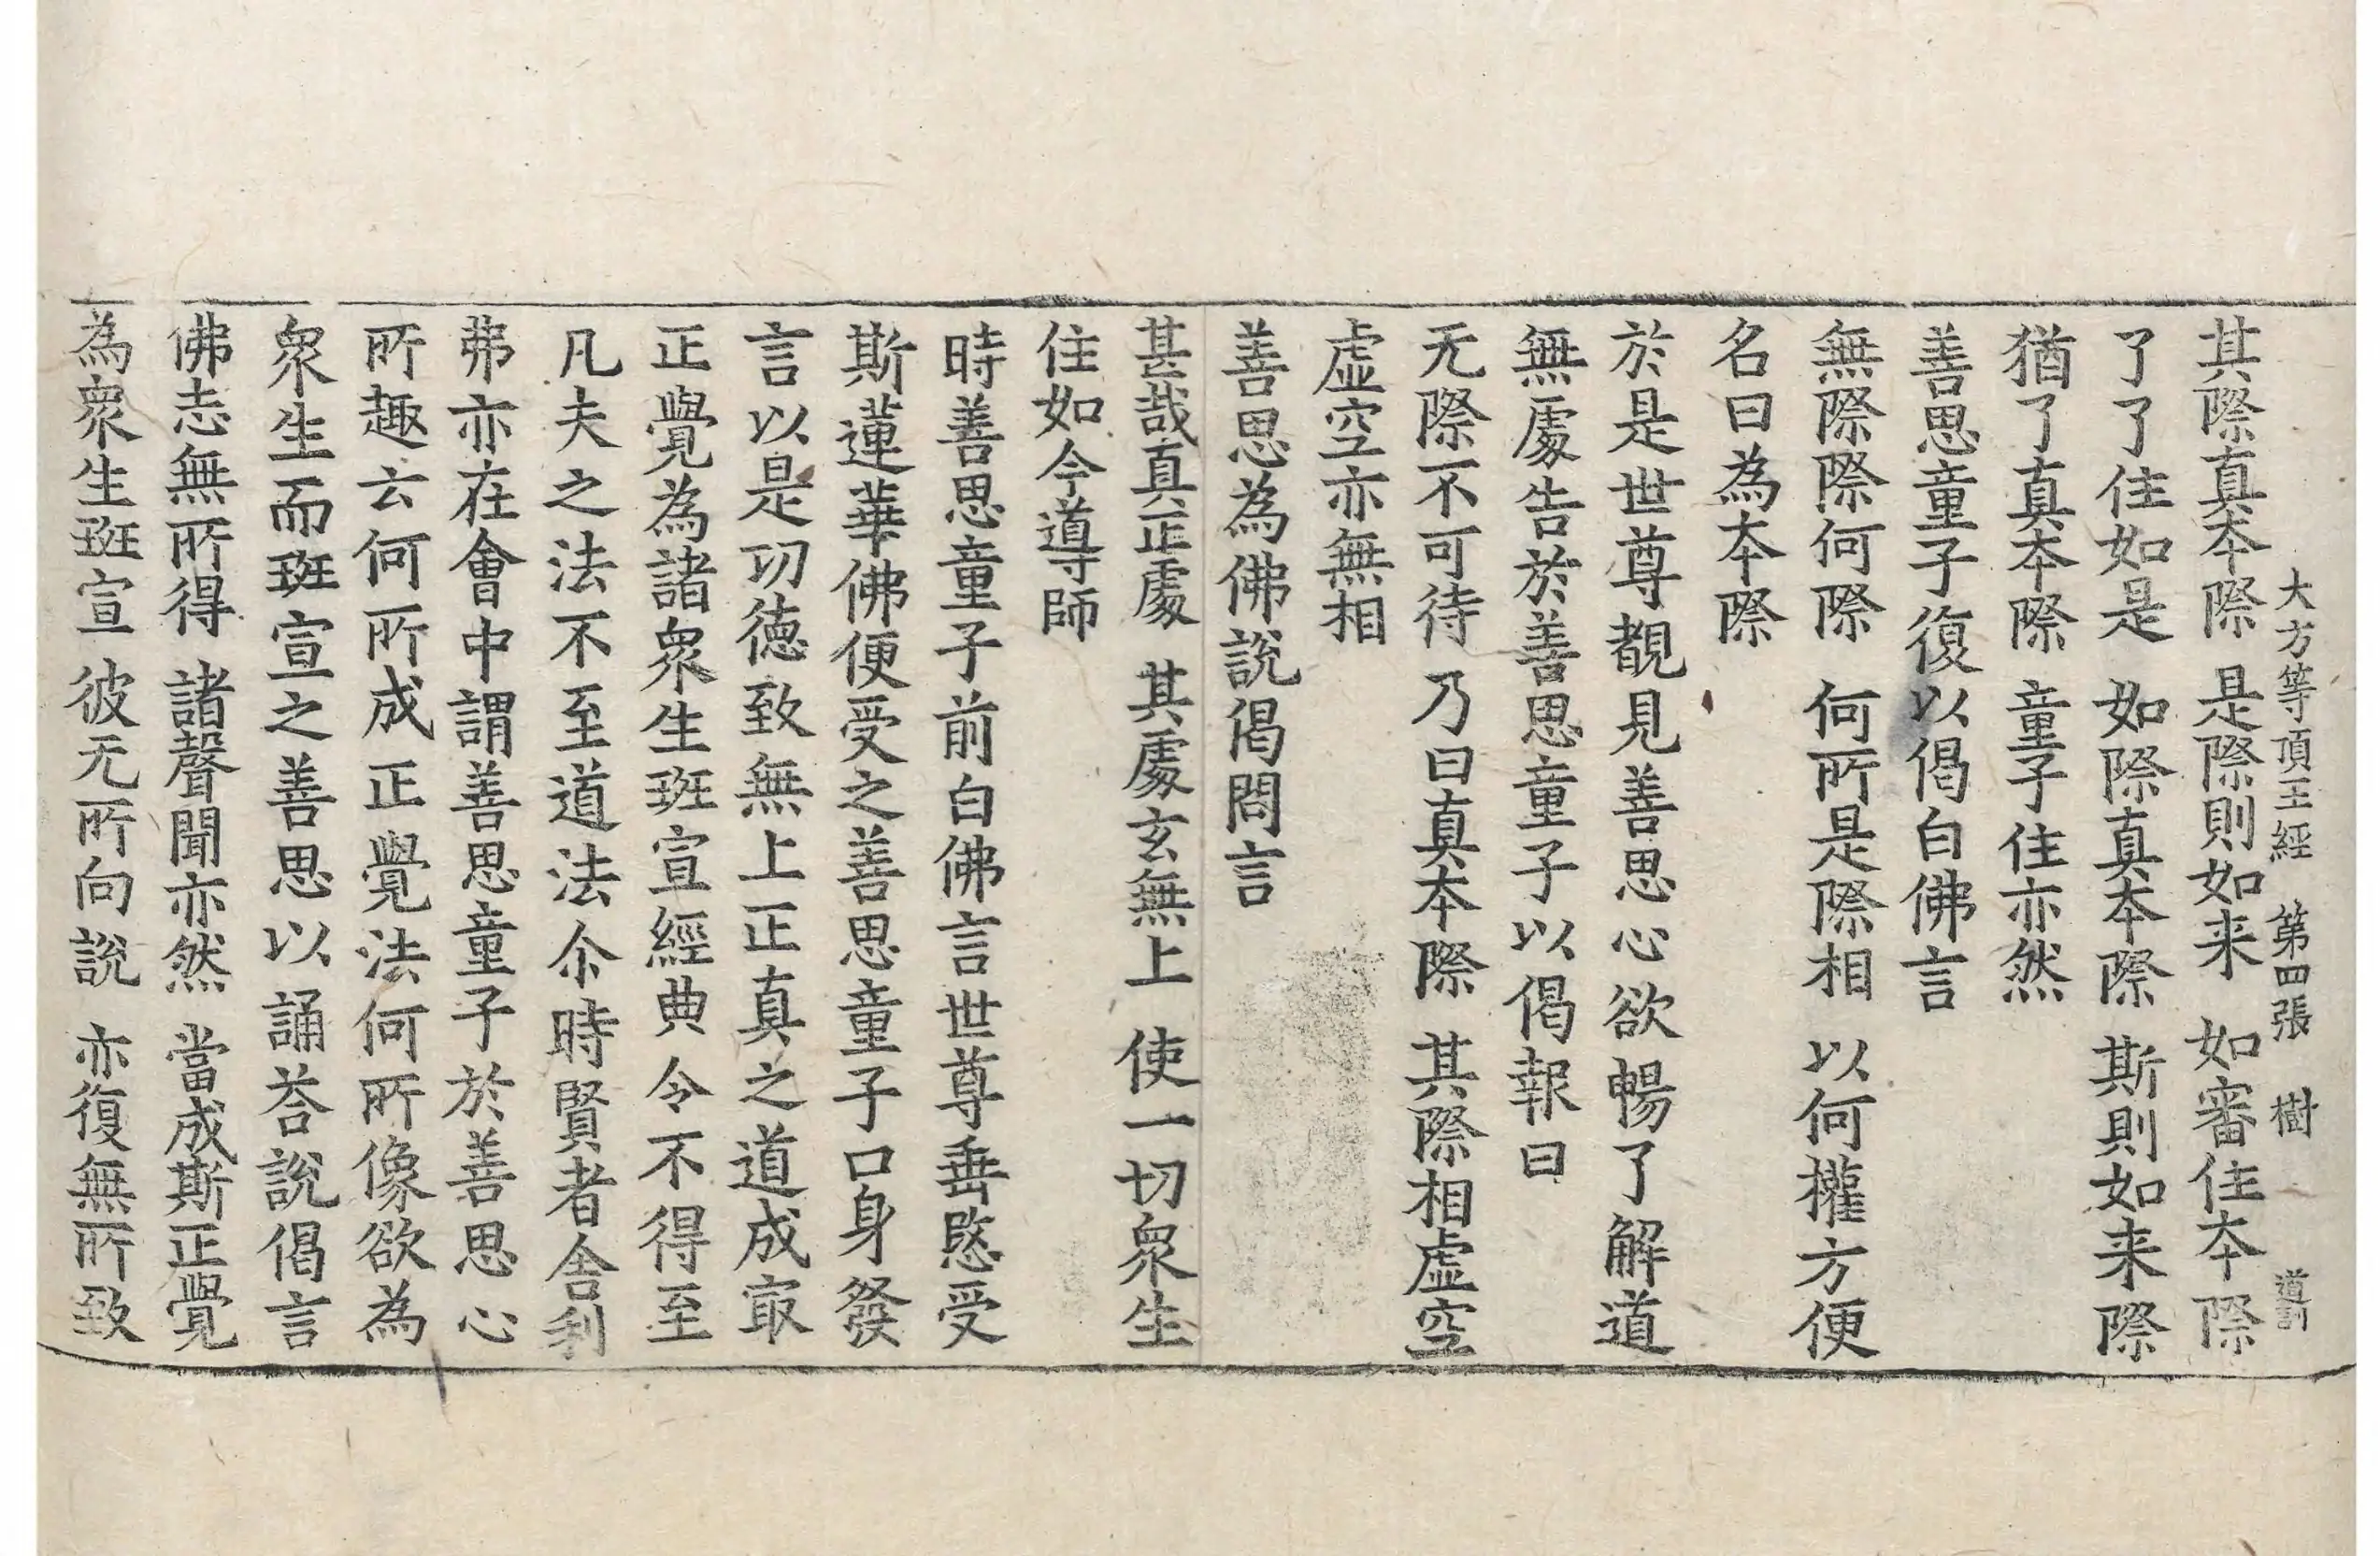 大方等頂王經 第四張 樹 道訓
其際真本際 是際則如来 如審住本際
了了住如是 如際真本際 斯則如来際
猶了真本際 童子住亦然
善思童子復以偈白佛言
無際際何際 何所是際相 以何權方便
名曰為本際
於是世尊覩見善思心欲暢了解道
無處告於善思童子以偈報曰
无際不可待 乃曰真本際 其際相虛空
虛空亦無相
善思為佛說偈問言
甚哉真正處 其處玄無上 使一切衆生
住如今導師
時善思童子前白佛言世尊垂愍受
斯蓮華佛便受之善思童子口身發
言以是功德致無上正真之道成冣
正覺為諸衆生班宣經典令不得至
凡夫之法不至道法尒時賢者舎利
弗亦在會中謂善思童子於善思心
所趣云何所成正覺法何所像欲為
衆生而班宣之善思以誦荅說偈言
佛志無所得 諸聲聞亦然 當成斯正覺
為衆生班宣 彼无所向說 亦復無所致